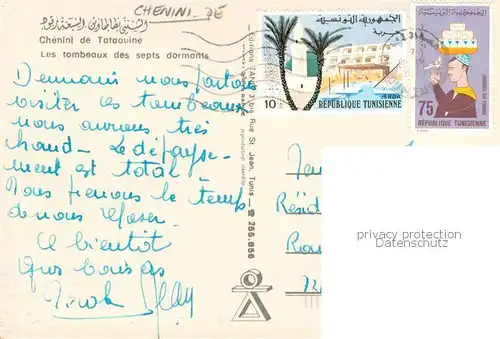 CHENINI - DE
الشنني تطاوين السبعة رقود
Chenini de Tataouine
Les tombeaux des septs dormants
Demain nous partons
visiter les tombeaux
nous aurons très
chaud - Le dépayse-
ment est total
Nous prenons le temps
de nous reposer.
A bientôt
Gros bisous
Jean
Editions
Rue St. Jean, Tunis - ☎ 255.656
reproduction interdite
الجمهورية التونسية
جربة
10
JERBA
RÉPUBLIQUE TUNISIENNE
75
RÉPUBLIQUE TUNISIENNE
Résid
privacy protection
Datenschutz